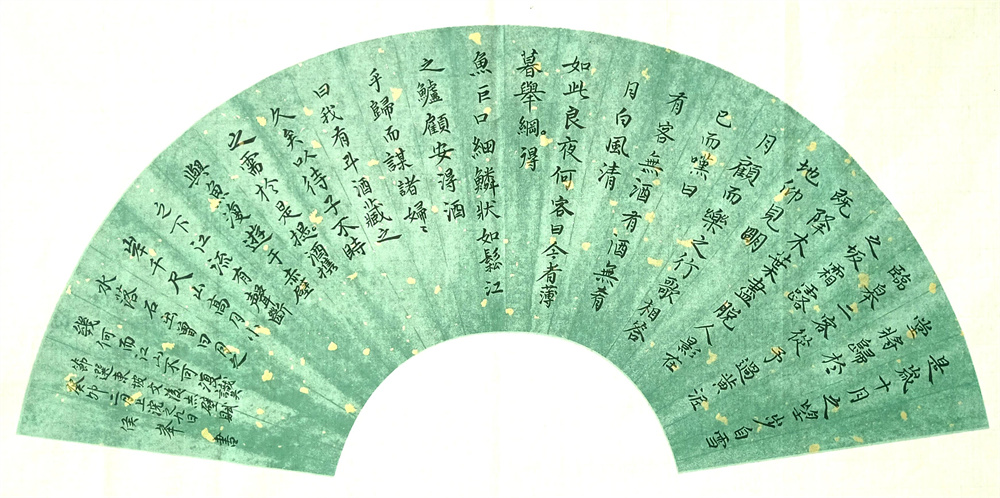 是歲十月之望步自雪
堂將歸於
臨皋二客從予過黃泥
之坂霜露
既降木葉盡脫人影在
地仰見明
月顧而樂之行歌相答
已而嘆曰
有客無酒有酒無肴
月白風清
如此良夜何客曰今者薄
暮舉綱得
魚巨口細鱗狀如鬆江
之鱸顧安得酒
乎歸而謀諸婦〻
曰我有斗酒藏之
久矣以待子不時
之需於是酒攜
與魚復遊于赤壁
之下江流有聲斷
岸千尺山高月小
水落石出曾日月之
幾何而江山不可復識
節選東坡文後赤壁賦
癸卯二月上浣之九日
侯峯書